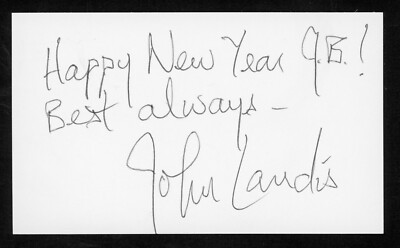 Happy New Year G.B.!
Best always -
John Landis